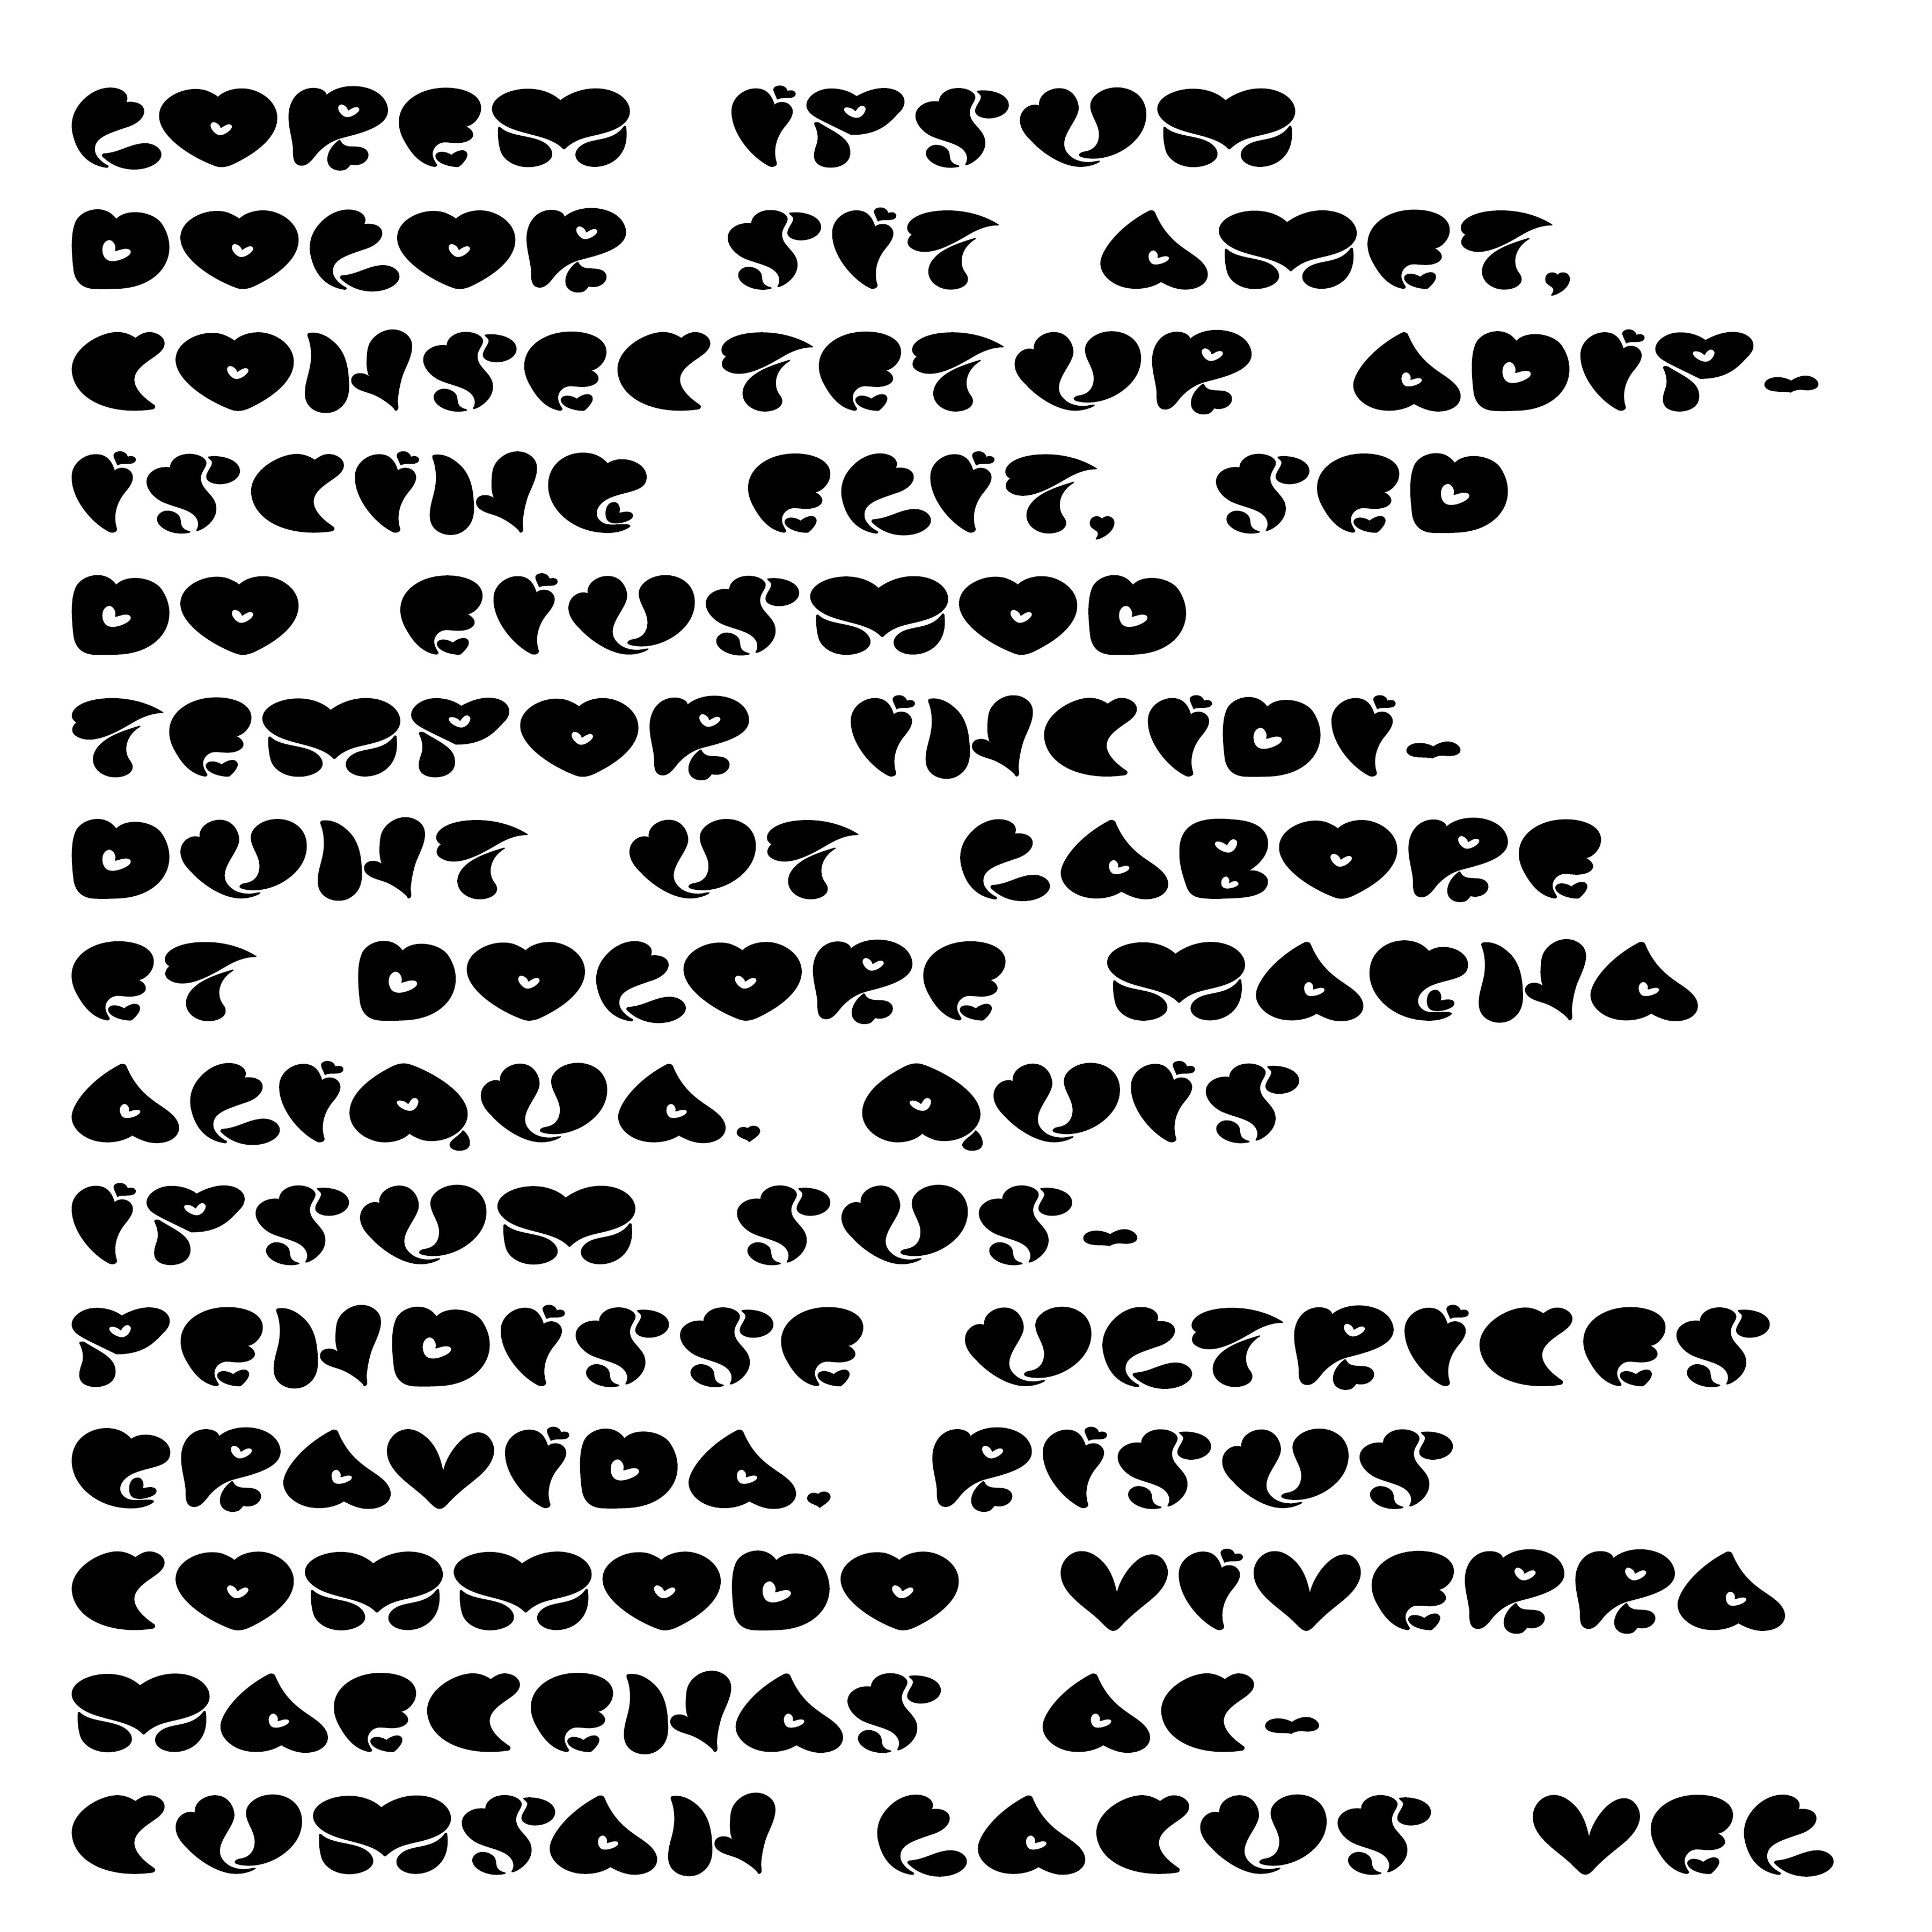 LOREM IPSUM
DOLOR SIT AMET,
CONSECTETUR ADIP-
ISCING ELIT, SED
DO EIUSMOD
TEMPOR INCIDI-
DUNT UT LABORE
ET DOLORE MAGNA
ALIQUA. QUIS
IPSUM SUS-
PENDISSE ULTRICES
GRAVIDA. RISUS
COMMODO VIVERRA
MAECENAS AC-
CUMSAN LACUS VEL